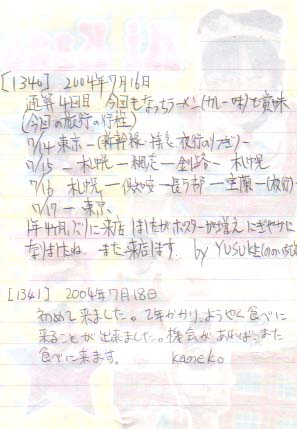 [1340] 2004年7月16日
通算4回目 今回もなっちラーメン(カレー味)を賞味
(今回の旅行の行程)
7/14 東京－(新幹線・特急・夜行のりつぎ)－
7/15 －札幌－網走－釧路－札幌
7/16 札幌－倶知安－長万部－室蘭－(夜行)－
7/17 －東京
1年4ヶ月ぶりに来店 ポスターが増え にぎやかに
なりましたね。また来店します。 by YUSUKE
[1341] 2004年7月18日
初めて来ました。2年かかり、ようやく食べに
来ることが出来ました。機会があれば、また
食べに来ます。 kameko